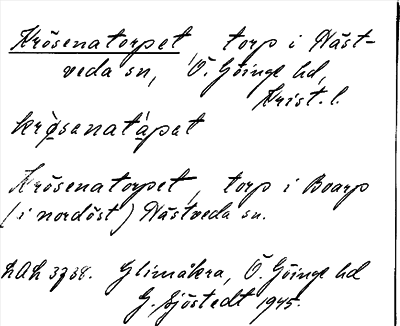 Krösenatorpet, torp i Häst-
veda sn, Ö. Göinge hd,
Krist. l.
krösenatåpat
Krösenatorpet, torp i Boarp
(i nordöst) Hästveda sn.
LAL 3738. Glimåkra, Ö. Göinge hd
G. Sjöstedt 1945.